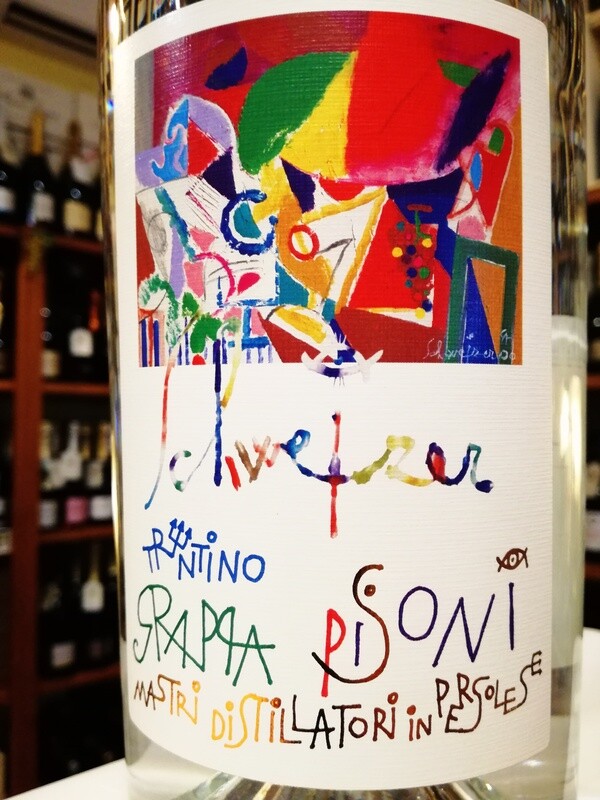 Schweizer
Schweizer
TRENTINO
GRAPPA PISONI
MASTRI DISTILLATORI IN PERGOLESE